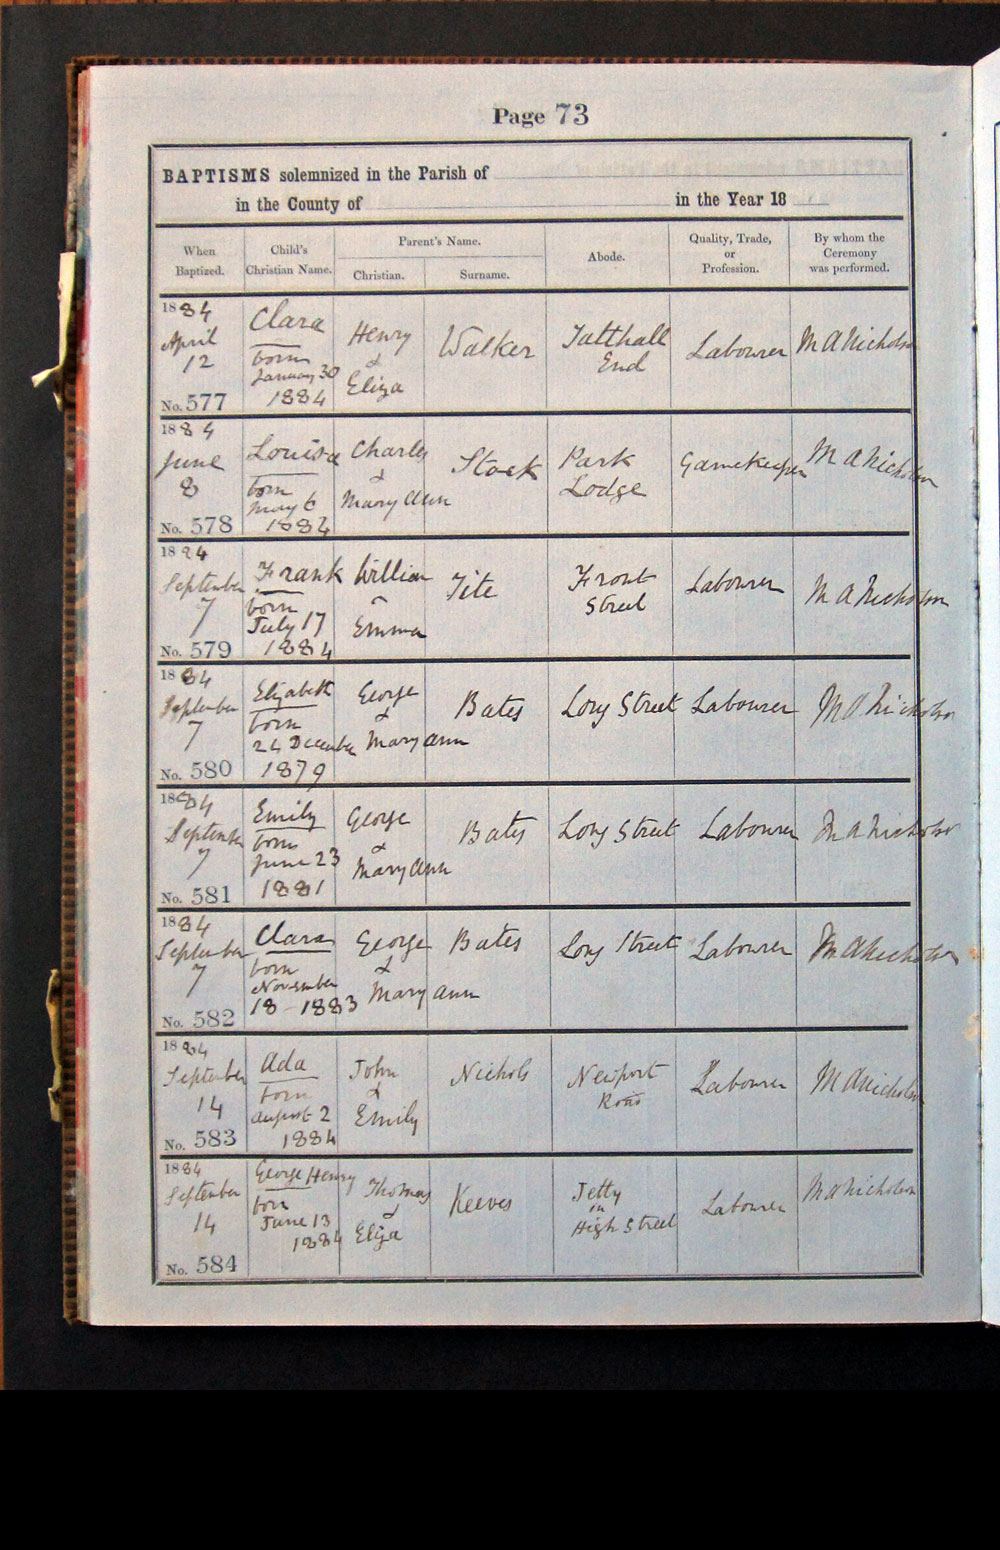 Page 73
BAPTISMS solemnized in the Parish of
in the County of in the Year 18
When Baptized.
Child's Christian Name.
Parent's Name.
Christian.
Surname.
Abode.
Quality, Trade, or Profession.
By whom the Ceremony was performed.
1884 April 12 No. 577
Clara born January 30 1884
Henry & Eliza
Walker
Tatthall End
Labourer
M A Nicholson
1884 June 8 No. 578
Louisa born May 6 1884
Charles & Mary Ann
Stock
Park Lodge
Gamekeeper
M A Nicholson
1884 September 7 No. 579
Frank born July 17 1884
William Emma
Tite
Front Street
Labourer
M A Nicholson
1884 September 7 No. 580
Elizabeth born 24 December 1879
George & Mary Ann
Bates
Long Street
Labourer
M A Nicholson
1884 September 7 No. 581
Emily born June 23 1881
George & Mary Ann
Bates
Long Street
Labourer
M A Nicholson
1884 September 7 No. 582
Clara born November 18 - 1883
George & Mary Ann
Bates
Long Street
Labourer
M A Nicholson
1884 September 14 No. 583
Ada born August 2 1884
John & Emily
Nichols
Newport Road
Labourer
M A Nicholson
1884 September 14 No. 584
George Henry born June 13 1884
Thomas & Eliza
Keeves
Jetty in High Street
Labourer
M A Nicholson